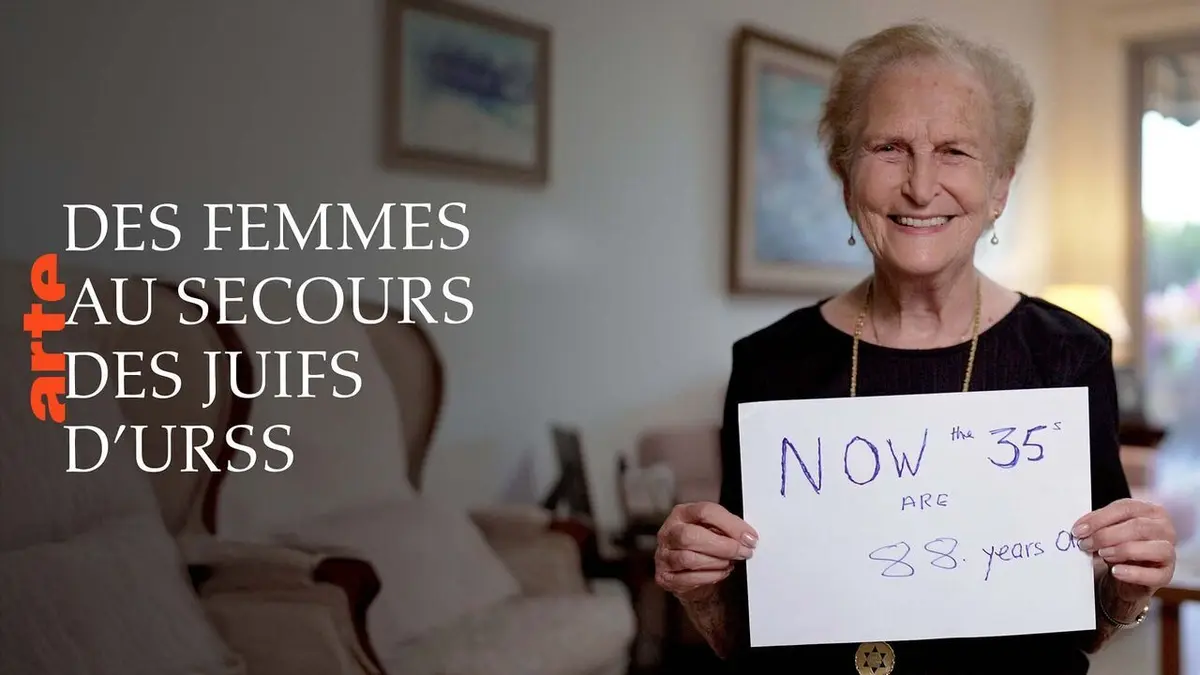 arte
DES FEMMES
AU SECOURS
DES JUIFS
D'URSS
NOW the 35s
ARE
88. years